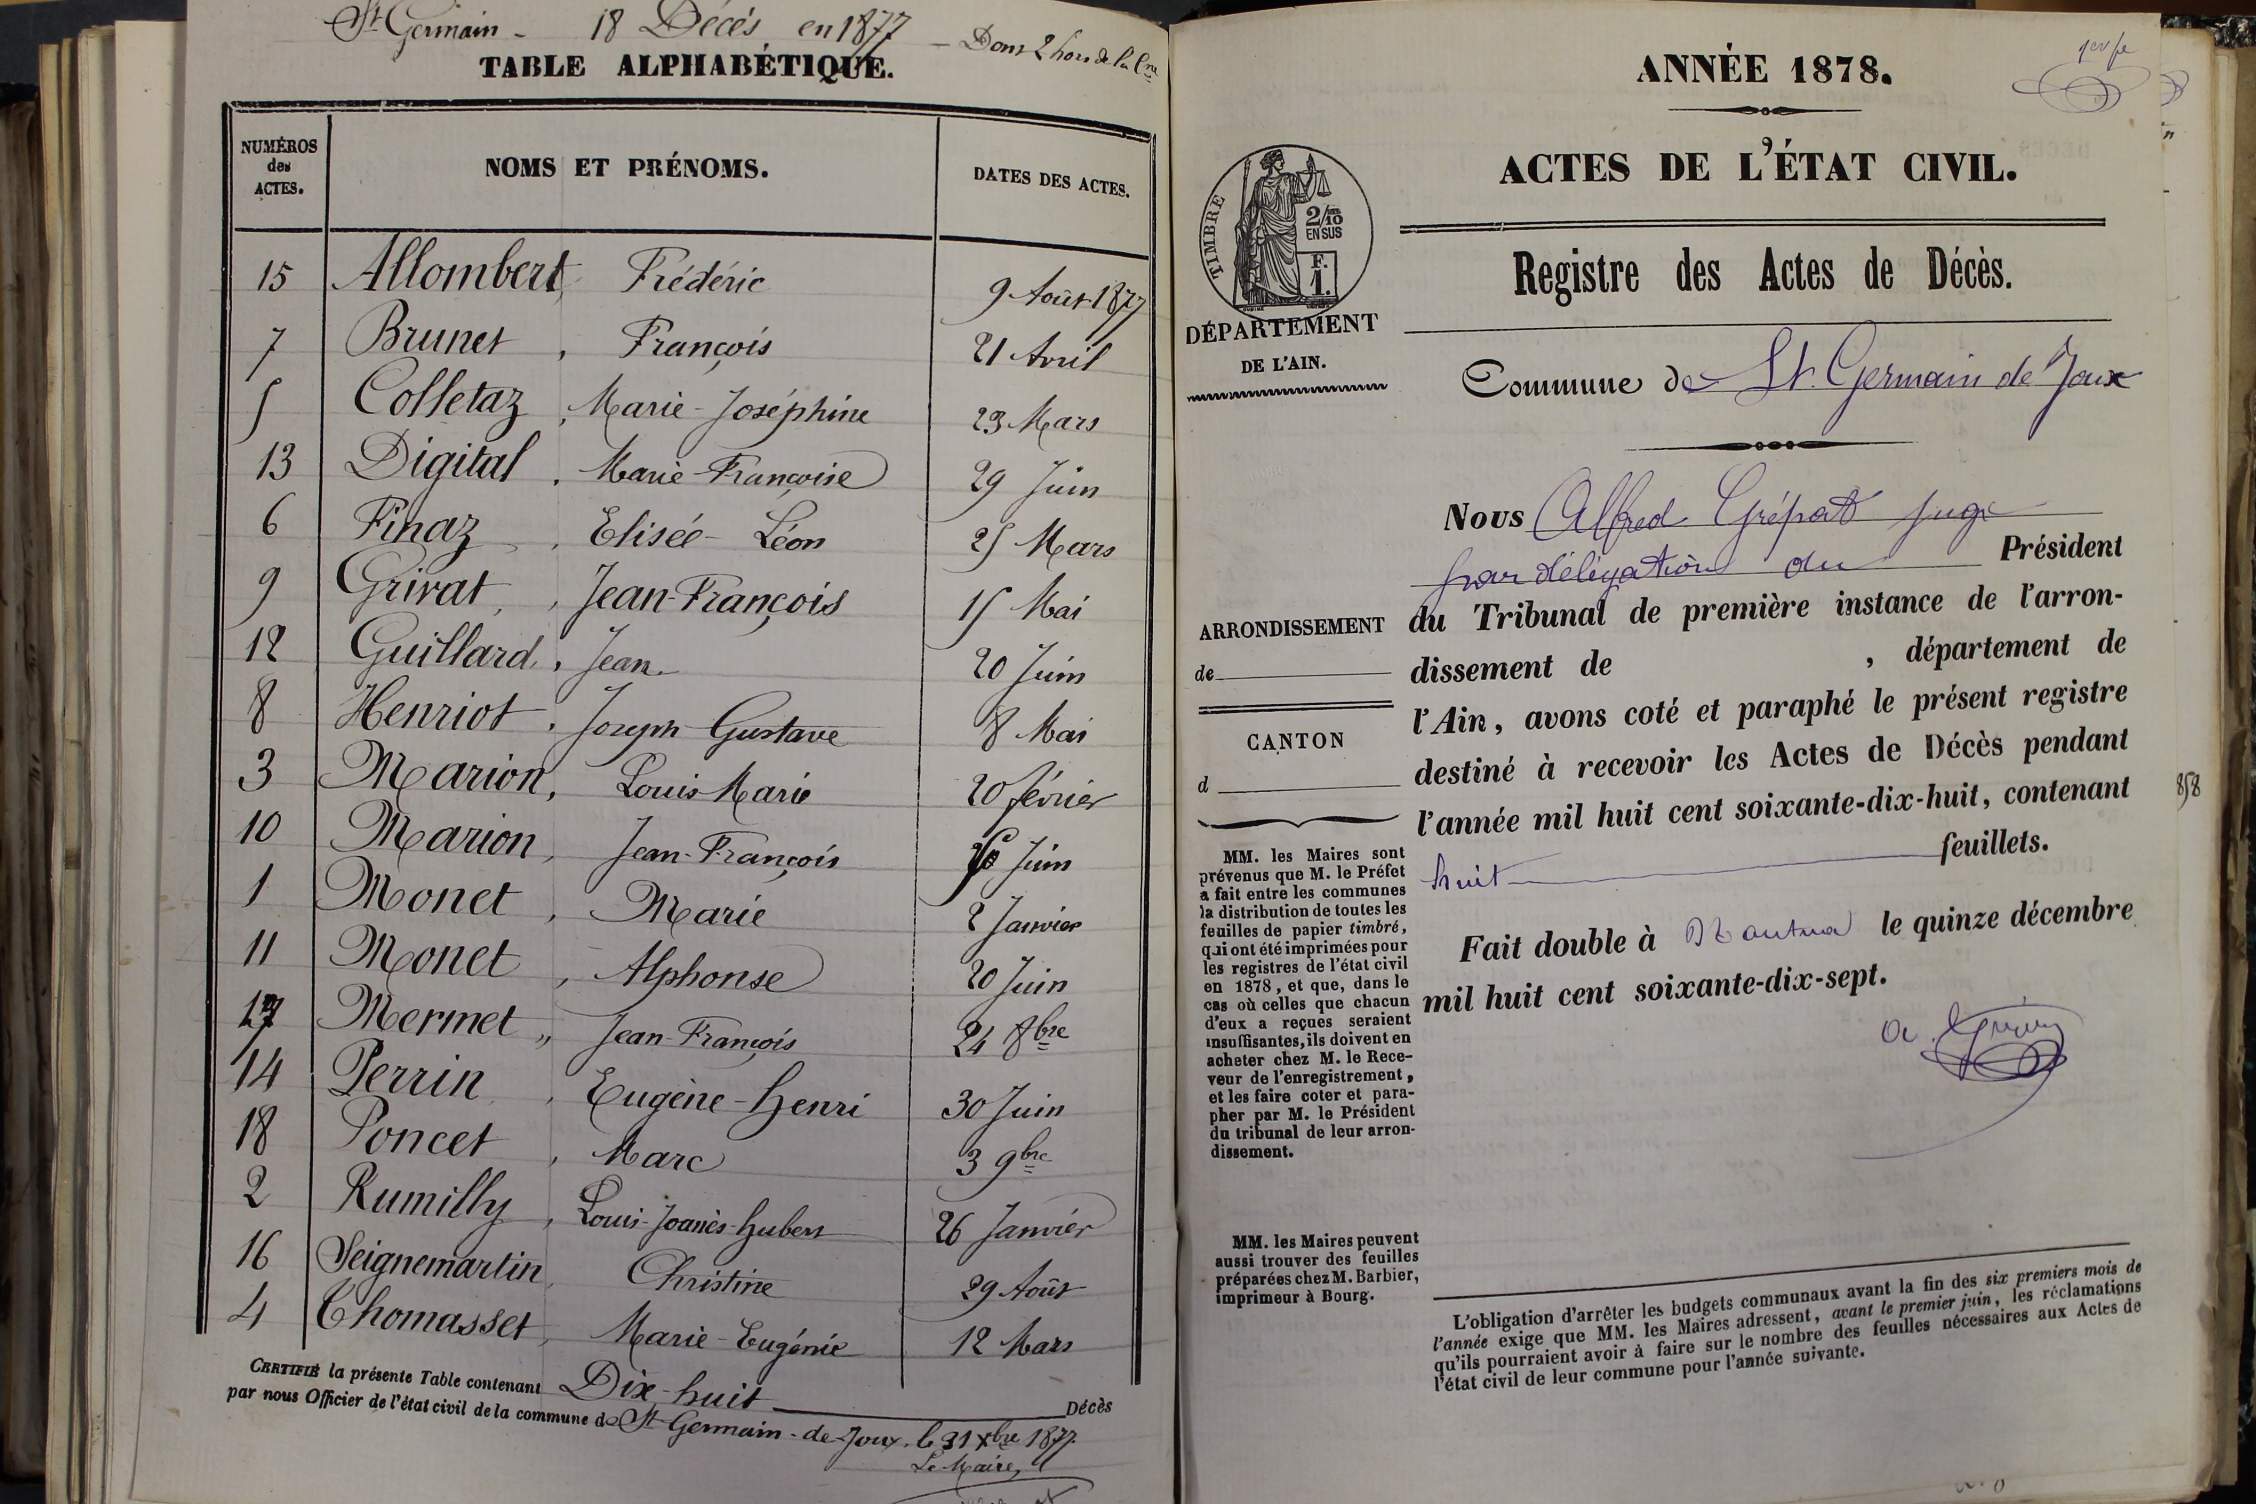 St Germain - 18 Décés en 1877 - Dont 2 hors de la Cne
TABLE ALPHABÉTIQUE.
NUMÉROS des ACTES. NOMS ET PRÉNOMS. DATES DES ACTES.
15 Allombert, Frédéric 9 Août 1877
7 Brunet, François 21 Avril
5 Colletaz, Marie-Joséphine 23 Mars
13 Digital, Marie-Françoise 29 Juin
6 Finaz, Elisée-Léon 25 Mars
9 Grivat, Jean-François 15 Mai
12 Guillard, Jean 20 Juin
8 Henriot, Joseph-Gustave 8 Mai
3 Marion, Louis Marie 20 février
10 Marion, Jean-François Juin
1 Monet, Marie 2 Janvier
11 Monet, Alphonse 20 Juin
17 Mermet, Jean-François 24 8bre
14 Perrin, Eugène-Henri 30 Juin
18 Poncet, Marc 3 9bre
2 Rumilly, Louis-Joanès-Hubert 26 Janvier
16 Seignemartin, Christine 29 Août
4 Thomasset, Marie-Eugénie 12 Mars
CERTIFIÉ la présente Table contenant Dix-huit Décès
par nous Officier de l'état civil de la commune de St Germain-de-Joux, le 31 Xbre 1877.
Le Maire,
ANNÉE 1878.
ACTES DE L'ÉTAT CIVIL.
TIMBRE
2/10
EN SUS
F.
1.
Registre des Actes de Décès.
DÉPARTEMENT
DE L'AIN.
Commune de St. Germain de Joux
Nous Alfred Grépat juge
par délégation du Président
du Tribunal de première instance de l'arron-
dissement de , département de
l'Ain, avons coté et paraphé le présent registre
destiné à recevoir les Actes de Décès pendant
l'année mil huit cent soixante-dix-huit, contenant
huit feuillets.
Fait double à Nantua le quinze décembre
mil huit cent soixante-dix-sept.
ARRONDISSEMENT
de
CANTON
d
MM. les Maires sont
prévenus que M. le Préfet
a fait entre les communes
la distribution de toutes les
feuilles de papier timbré,
qui ont été imprimées pour
les registres de l'état civil
en 1878, et que, dans le
cas où celles que chacun
d'eux a reçues seraient
insuffisantes, ils doivent en
acheter chez M. le Rece-
veur de l'enregistrement,
et les faire coter et para-
pher par M. le Président
du tribunal de leur arron-
dissement.
MM. les Maires peuvent
aussi trouver des feuilles
préparées chez M. Barbier,
imprimeur à Bourg.
L'obligation d'arrêter les budgets communaux avant la fin des six premiers mois de
l'année exige que MM. les Maires adressent, avant le premier juin, les réclamations
qu'ils pourraient avoir à faire sur le nombre des feuilles nécessaires aux Actes de
l'état civil de leur commune pour l'année suivante.
858